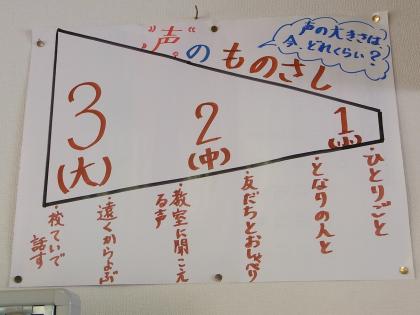 "声"のものさし
声の大きさは、
今、どれくらい？
1
(小)
2
(中)
3
(大)
・ひとりごと
・となりの人と
・友だちとおしゃべり
・教室に聞こえ
る声
・遠くからよぶ
・校ていで
話す